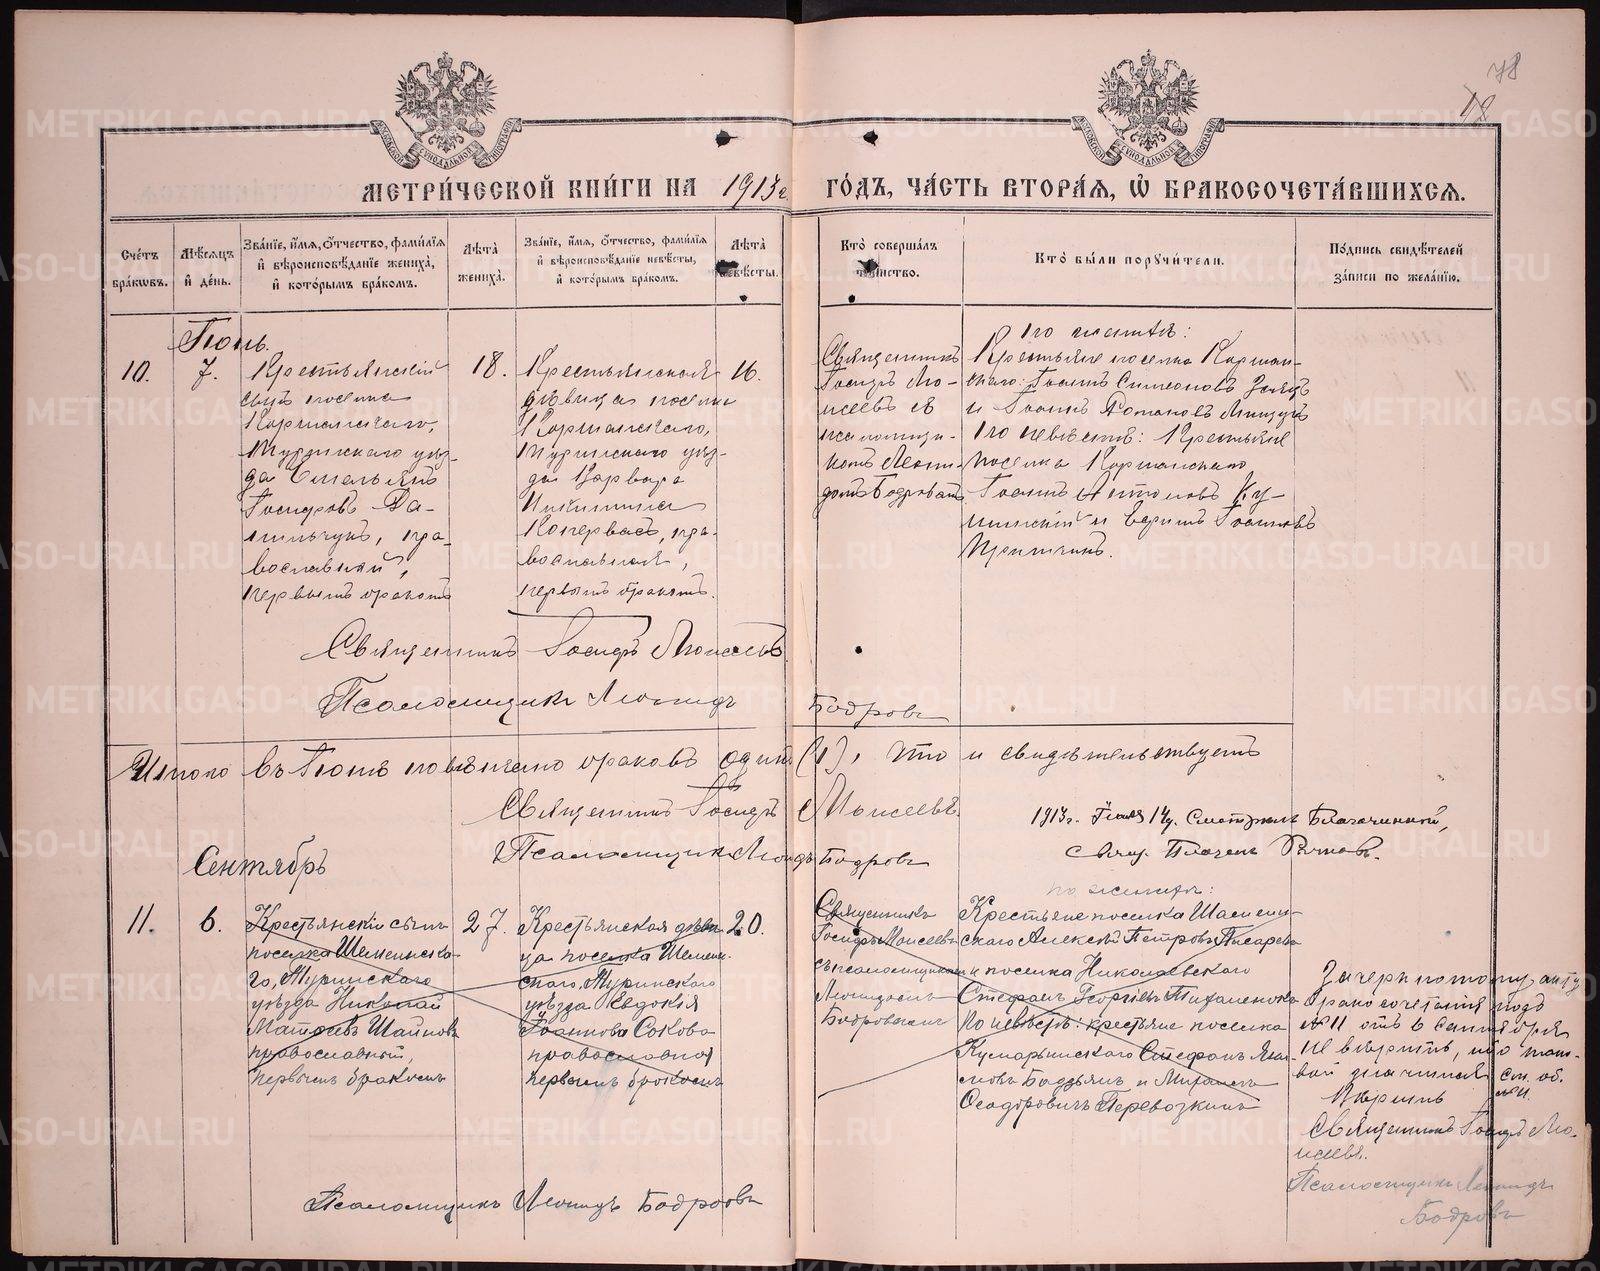 78
18
МЕТРИ́ЧЕСКОЙ КНИ́ГИ НА 1913 г. ГО́ДЪ, ЧА́СТЬ ВТОРА́Я, Ѡ БРАКОСОЧЕТА́ВШИХСЯ.
Сче́тъ бра́кѡвъ.
Мѣ́сяцъ и де́нь.
Зва́нїе, и́мя, ѻ́тчество, фами́лїя и вѣроисповѣ́данїе жениха̀, и кото́рымъ бра́комъ.
Лѣ́та жениха̀.
Зва́нїе, и́мя, ѻ́тчество, фами́лїя и вѣроисповѣ́данїе невѣ́сты, и кото́рымъ бра́комъ.
Лѣ́та невѣ́сты.
Кто̀ соверша́лъ та́инство.
Кто̀ бы́ли порꙋчи́тели.
По́дпись свидѣ́телей за́писи по жела́нїю.
Іюнь.
10.
7.
Крестьянскій
сынъ поселка
Коршанскаго,
Туринскаго уѣз-
да Емельянъ
Іосифовъ Да-
нильчукъ, пра-
вославный,
первымъ бракомъ
18.
Крестьянская
дѣвица поселка
Коршанскаго,
Туринскаго уѣз-
да Варвара
Никитина
православная,
первымъ бракомъ.
16.
Священникъ
Іосифъ Мо-
исеевъ съ
псаломщи-
комъ Леони-
домъ Бодровымъ
По женихѣ:
Крестьяне поселка Коршан-
скаго: Іоаннъ Симеоновъ Заяцъ
и Іоаннъ Романовъ
По невѣстѣ: Крестьяне
поселка Коршанскаго
Іоаннъ Антоновъ Ку-
и Іоанновъ
Священникъ Іосифъ Моисеевъ
Псаломщикъ Леонидъ Бодровъ
Итого въ Іюнѣ повѣнчано браковъ одинъ (1), что и свидѣтельствуетъ
Священникъ Іосифъ Моисеевъ.
Псаломщикъ Леонидъ Бодровъ
1913 г. Іюля 14 д. Смотрѣлъ Благочинный,
Свящ.
Сентябрь
11.
6.
Крестьянскій сынъ
поселка Шеменьска-
го, Туринскаго
уѣзда Николай
Матѳеевъ Шайновъ
православный,
первымъ бракомъ
27.
Крестьянская дѣви-
ца поселка Шемень-
скаго, Туринскаго
уѣзда Евдокія
Іоаннова Сокова
православная
первымъ бракомъ
20.
Священникъ
Іосифъ Моисеевъ
съ псаломщикомъ
Леонидомъ
Бодровымъ
по женихѣ:
Крестьяне поселка Шемень-
скаго Алексѣй Петровъ Писаревъ
и поселка Николаевскаго
Стефанъ Георгіевъ Тиханенокъ
По невѣстѣ: крестьяне поселка
Кумарьинскаго Стефанъ Яки-
мовъ Бадзьянъ и Михаилъ
Ѳеодоровичъ Перевозкинъ
Зачеркнотому акту
бракосочетанія подъ
№ 11 отъ 6 Сентября
не вѣрить, ибо тако-
вой значится см. об.
№ 11.
Вѣрить
Священникъ Іосифъ Мо-
исеевъ.
Псаломщикъ Леонидъ
Бодровъ
Псаломщикъ Леонидъ Бодровъ
METRIKI.GASO-URAL.RU